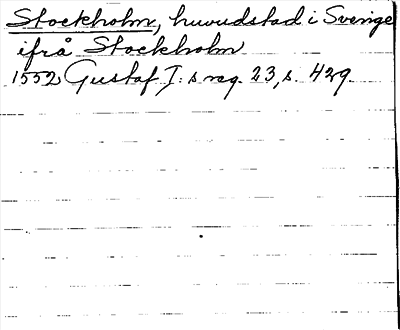 Stockholm, huvudstad i Sverige
ifrå Stockholm
1552 Gustaf I: s reg. 23, s. 429.